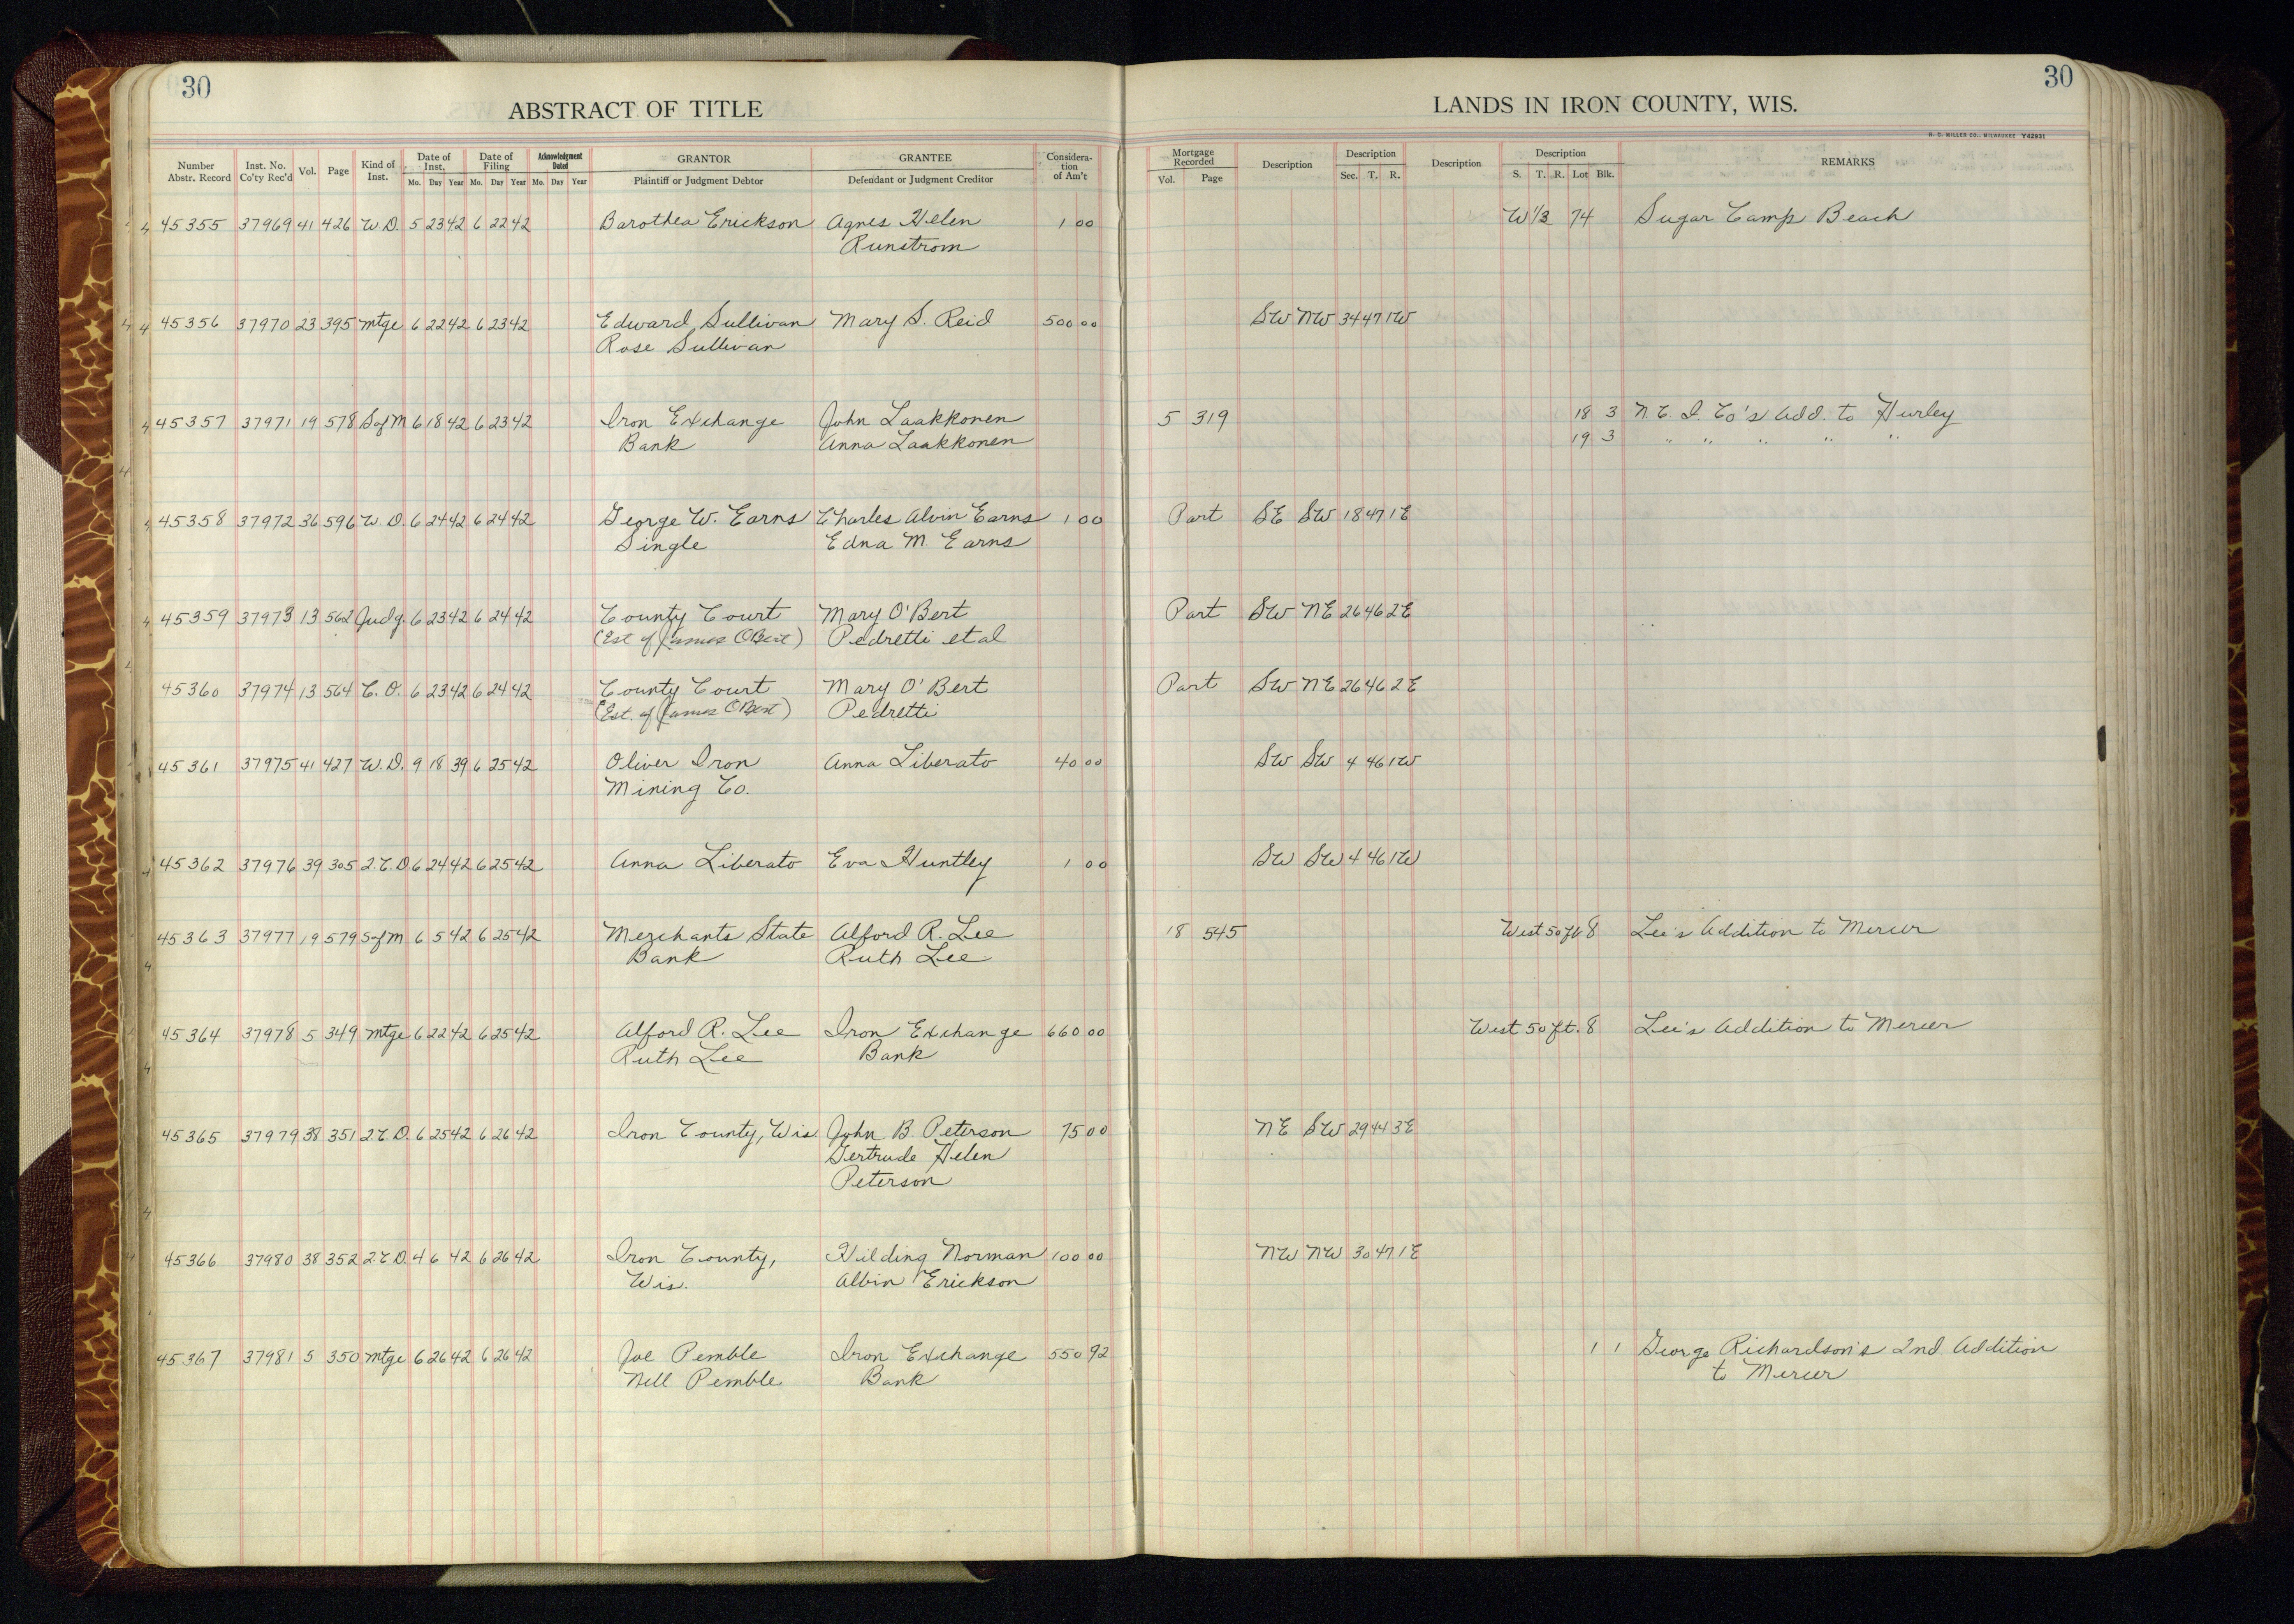 30
ABSTRACT OF TITLE
LANDS IN IRON COUNTY, WIS.
30
H. C. MILLER CO., MILWAUKEE Y42931
Number Abstr. Record Inst. No. Co'ty Rec'd Vol. Page Kind of Inst. Date of Inst. Mo. Day Year Date of Filing Mo. Day Year Acknowledgment Dated Mo. Day Year GRANTOR Plaintiff or Judgment Debtor GRANTEE Defendant or Judgment Creditor Consideration of Am't Mortgage Recorded Vol. Page Description Description Sec. T. R. Description Description S. T. R. Lot Blk. REMARKS
45355 37969 41 426 W.D. 5 23 42 6 22 42 Barothea Erickson Agnes Helen 1 00 W 1/3 74 Sugar Camp Beach
Runstrom
45356 37970 23 395 Mtge 6 22 42 6 23 42 Edward Sullivan Mary S. Reid 500 00 SW NW 34 47 1W
Rose Sullivan
45357 37971 19 578 S of M 6 18 42 6 23 42 Iron Exchange John Laakkonen 5 319 18 3 N.C.I. Co's Add. to Hurley
Bank Anna Laakkonen 19 3 " " " " "
45358 37972 36 596 W.D. 6 24 42 6 24 42 George W. Earns Charles Alvin Earns 1 00 Part SE SW 18 47 1E
Single Edna M. Earns
45359 37973 13 562 Judg. 6 23 42 6 24 42 County Court Mary O'Bert Part SW NE 26 46 2E
(Est of James OBert) Pedretti et al
45360 37974 13 564 C.O. 6 23 42 6 24 42 County Court Mary O'Bert Part SW NE 26 46 2E
(Est. of James OBert) Pedretti
45361 37975 41 427 W.D. 9 18 39 6 25 42 Oliver Iron Anna Liberato 40 00 SW SW 4 46 1W
Mining Co.
45362 37976 39 305 2.C.D. 6 24 42 6 25 42 Anna Liberato Eva Huntley 1 00 SW SW 4 46 1W
45363 37977 19 579 S of M 6 5 42 6 25 42 Merchants State Alford R. Lee 18 545 West 50 ft. 8 Lee's Addition to Mercer
Bank Ruth Lee
45364 37978 5 349 Mtge 6 22 42 6 25 42 Alford R. Lee Iron Exchange 660 00 West 50 ft. 8 Lee's Addition to Mercer
Ruth Lee Bank
45365 37979 38 351 2.C.D. 6 25 42 6 26 42 Iron County, Wis John B. Peterson 75 00 NE SW 29 44 3E
Gertrude Helen
Peterson
45366 37980 38 352 2.C.D. 4 6 42 6 26 42 Iron County, Hilding Norman 100 00 NW NW 30 47 1E
Wis. Albin Erickson
45367 37981 5 350 Mtge 6 26 42 6 26 42 Joe Pemble Iron Exchange 550 92 1 1 George Richardson's 2nd Addition
Nell Pemble Bank to Mercer